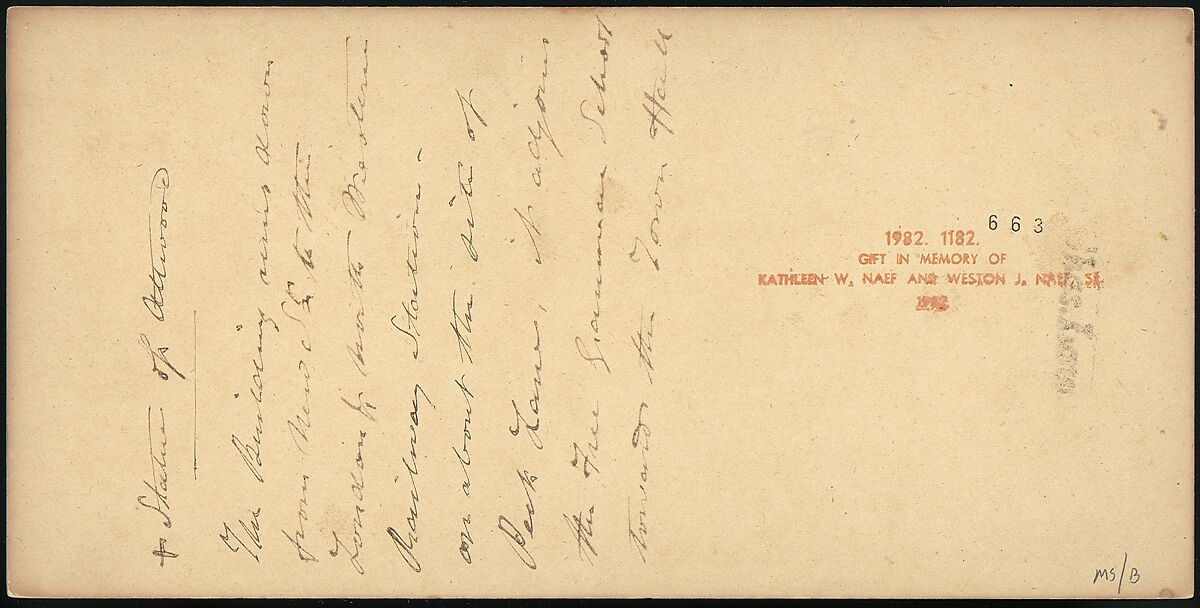 + Statue of Attwood
The Building runs down
from New St to the
London & North Western
Railway Station -
on about the site of
Peck Lane, it adjoins
the Free Grammar School
towards the Town Hall
663
1982. 1182.
GIFT IN MEMORY OF
KATHLEEN W. NAEF AND WESTON J. NAEF, SR.
MS/B